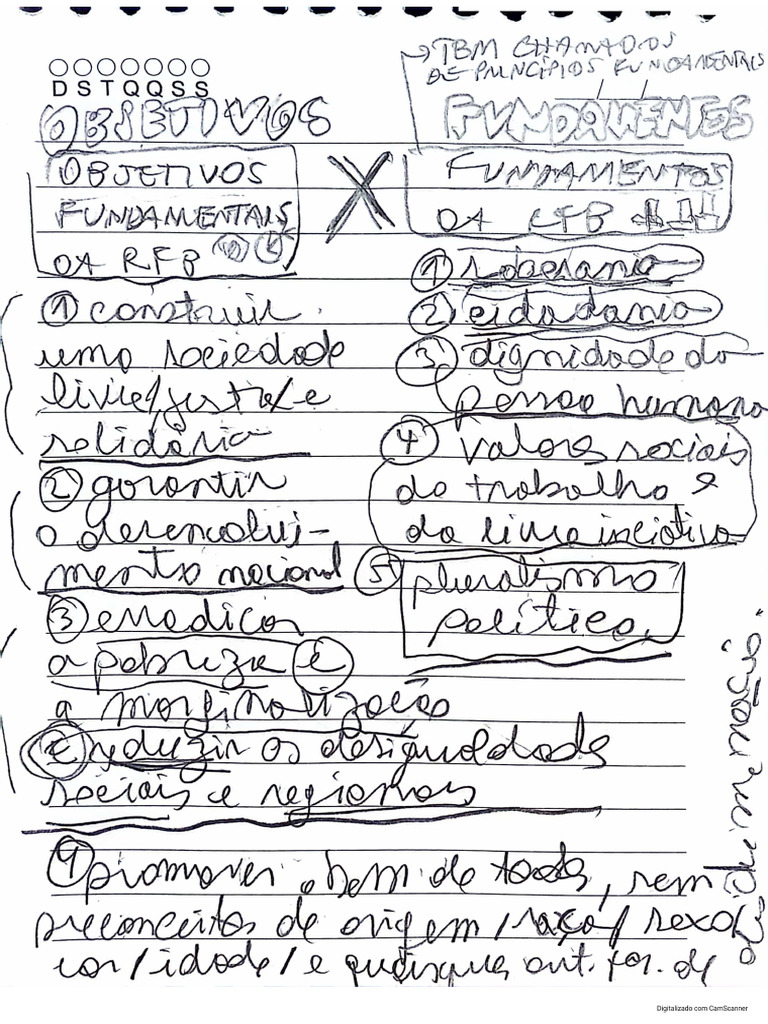 D S T Q Q S S
OBJETIVOS
OBJETIVOS
FUNDAMENTAIS
DA RFB
① construir
uma sociedade
livre/justa/e
solidária
② garantir
o desenvolvi-
mento nacional
③ erradicar
a pobreza e
a marginalização
e reduzir as desigualdades
sociais e regionais
④ promover o bem de todos, sem
preconceitos de origem/raça/sexo/
cor/idade/e quaisquer out. for. de
discriminação.
X
→ TBM CHAMADOS
DE PRINCÍPIOS FUNDAMENTAIS
FUNDAMENTOS
FUNDAMENTOS
DA RFB
① soberania
② cidadania
③ dignidade da
pessoa humana
④ valores sociais
do trabalho e
da livre iniciativa
⑤ pluralismo
político.
Digitalizado com CamScanner